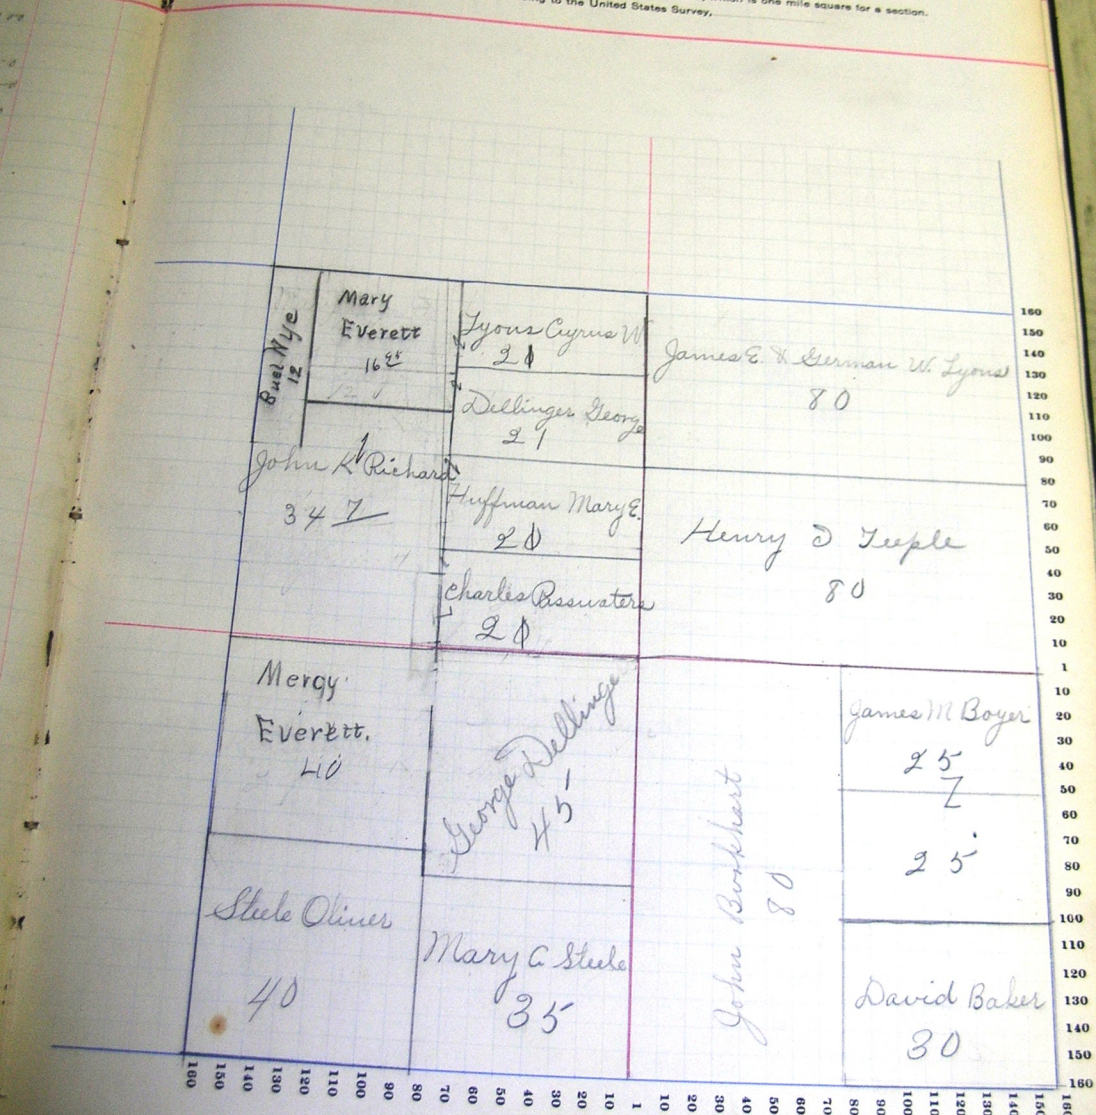 which is one mile square for a section.
to the United States Survey,
Buel Nye
12
Mary
Everett
16
Lyons Cyrus W
21
Dellinger George
21
James E. & German W. Lyons
80
John K Richard
34 7
Huffman Mary E.
20
Henry D Teeple
80
Charles Passwaters
20
Mercy
Everett.
40
George Dellinge
45
James M Boyer
25
25
John Bookhart
80
Steele Oliver
40
Mary A Steele
35
David Baker
30
160
150
140
130
120
110
100
90
80
70
60
50
40
30
20
10
1
10
20
30
40
50
60
70
80
90
100
110
120
130
140
150
160
160 150 140 130 120 110 100 90 80 70 60 50 40 30 20 10 1 10 20 30 40 50 60 70 80 90 100 110 120 130 140 15 16